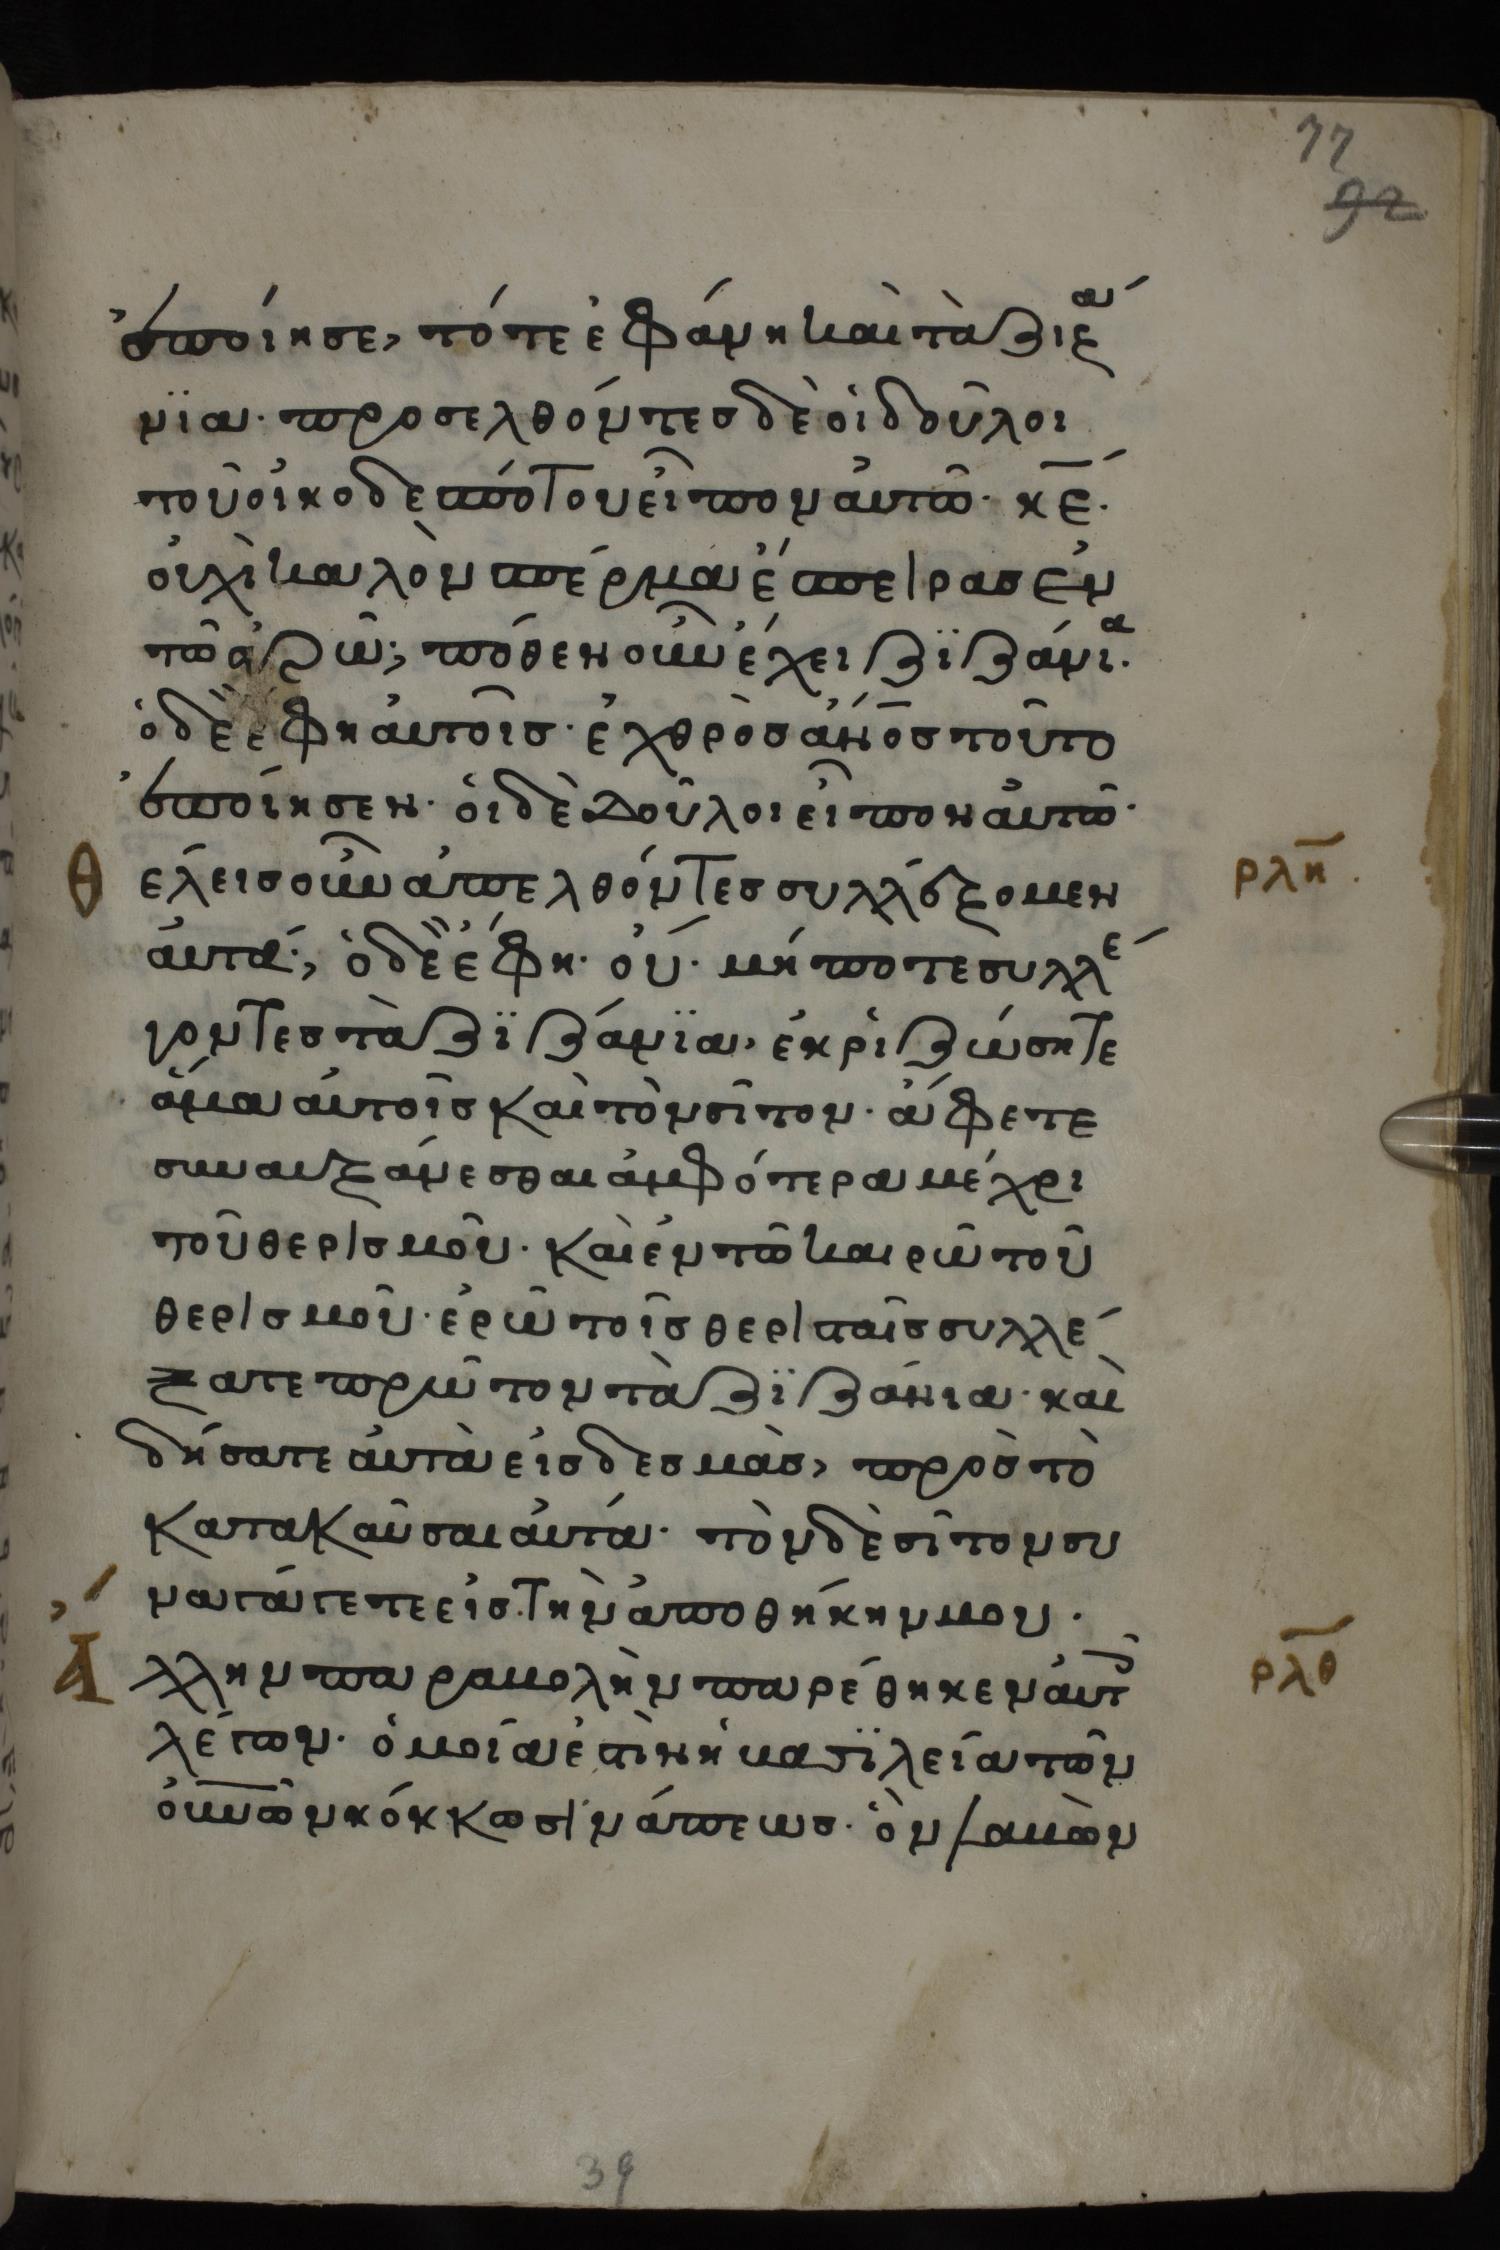 77
92
ἐποίησε, τότε ἐφάνη καὶ τὰ ζιζά
νϊα· προσελθόντες δὲ οἱ δοῦλοι
τοῦ οἰκοδεσπότου εἶπον αὐτῶ· κε̄·
οὐχὶ καλὸν σπέρμα ἔσπειρας ἐν
τῶ ἀγρῶ; πόθεν οὖν ἔχει ζϊζάνια·
ὁ δὲ ἔφη αὐτοῖς· ἐχθρὸς ἄνο̄ς τοῦτο
ἐποίησεν· οἱ δὲ δοῦλοι εἶπον αὐτῶ·
Θ ελεις οὖν ἀπελθόντες συλλέξομεν ρλη
αὐτά; ὁ δὲ ἔφη· οὔ· μήποτε συλλέ
γοντες τὰ ζϊζάνϊα, ἐκριζώσητε
ἅμα αὐτοῖς καὶ τὸν σῖτον· ἄφετε
συναυξάνεσθαι ἀμφότερα μέχρι
τοῦ θερισμοῦ· καὶ ἐν τῶ καιρῶ τοῦ
θερισμοῦ· ἐρῶ τοῖς θερισταῖς συλλέ
ξατε πρῶτον τὰ ζϊζάνια· καὶ
δήσατε αὐτὰ εἰς δεσμὰς, πρὸς τὸ
κατακαῦσαι αὐτά· τὸν δὲ σῖτον συ
ναγάγετε εἰς τὴν ἀποθήκην μου·
Ἄ λλην παραβολὴν παρέθηκεν αὐτοῖς ρλθ
λέγων· ὁμοία ἐστὶν ἡ βασϊλεία τῶν
οὐνῶν κόκκω σινάπεως· ὃν λαβὼν
39